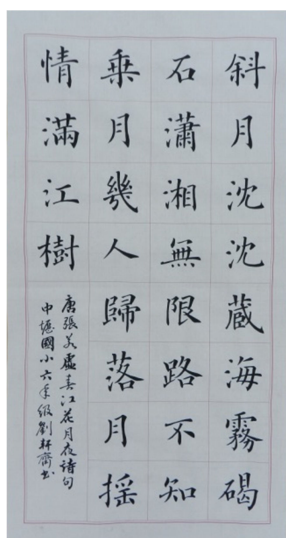 斜月沈沈藏海霧碣
石瀟湘無限路不知
乗月幾人歸落月摇
情滿江樹
唐張若虛春江花月夜詩句
中德國小六年級劉軒齊書